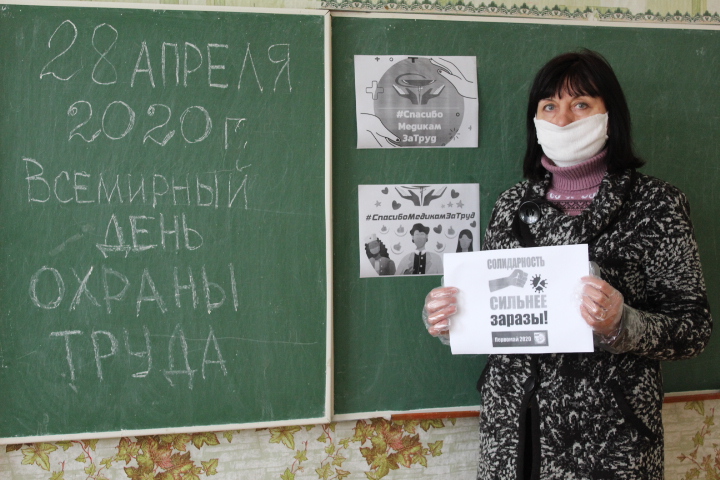 28 АПРЕЛЯ
2020 г.
ВСЕМИРНЫЙ
ДЕНЬ
ОХРАНЫ
ТРУДА
#Спасибо
Медикам
ЗаТруд
#СпасибоМедикамЗаТруд
СОЛИДАРНОСТЬ
СИЛЬНЕЕ
заразы!
Первомай 2020